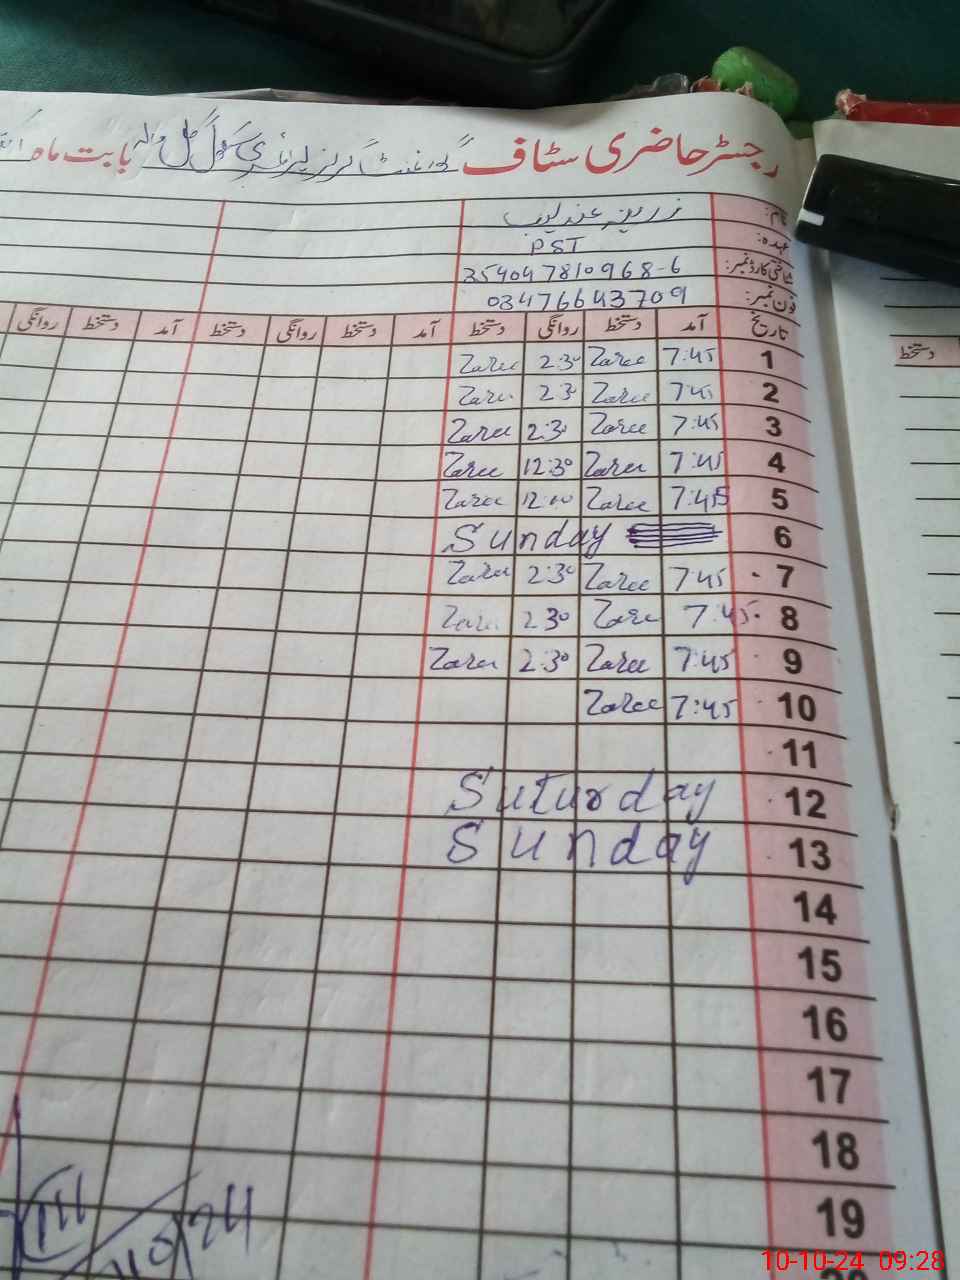 رجسٹر حاضری سٹاف گورنمنٹ گرلز پرائمری سکول گل والہ بابت ماہ
نام: زرینہ عندلیب
عہدہ: PST
شناختی کارڈ نمبر: 354047810968-6
فون نمبر: 03476643709
تاریخ آمد دستخط روانگی دستخط آمد دستخط روانگی دستخط آمد دستخط روانگی
دستخط
1 7:45 Zaree 2:30 Zaree
2 7:45 Zaree 2:30 Zaree
3 7:45 Zaree 2:30 Zaree
4 7:45 Zaree 12:30 Zaree
5 7:45 Zaree 12:00 Zaree
6 Sunday
7 7:45 Zaree 2:30 Zaree
8 7:45 Zaree 2:30 Zaree
9 7:45 Zaree 2:30 Zaree
10 7:45 Zaree
11
12 Suturday
13 Sunday
14
15
16
17
18
19
10-10-24 09:28